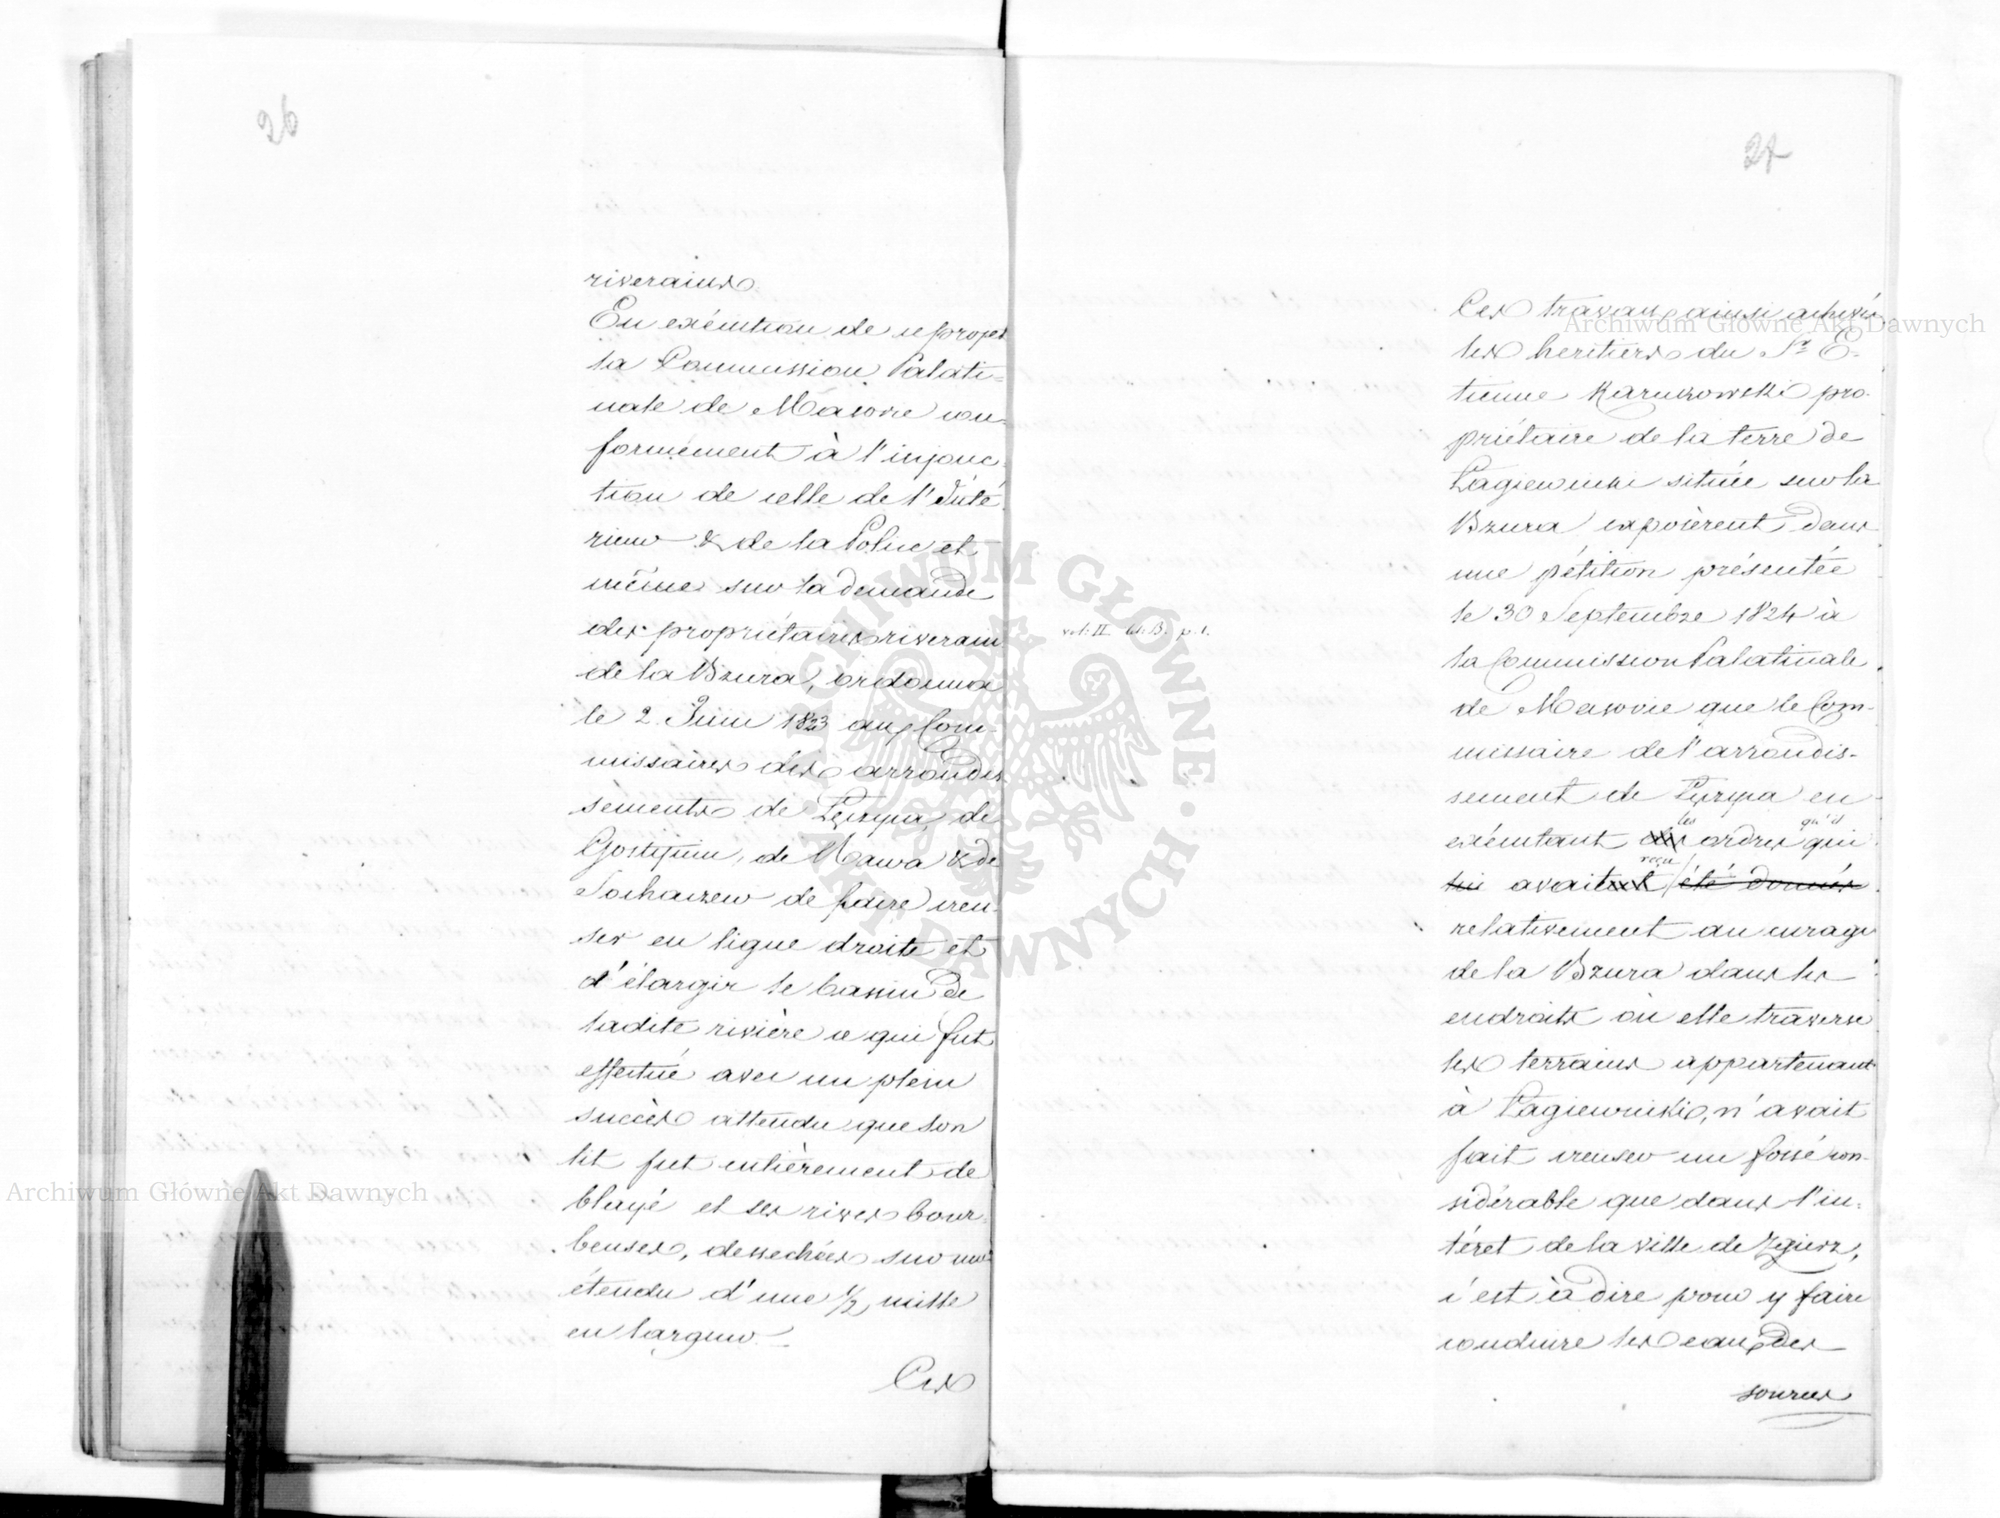 26
riverains.
En exécution de ce projet
la Commission Palati-
nale de Masovie con-
formément à l'injonc-
tion de celle de l'Inté-
rieur & de la Police et
même sur la demande
des propriétaires riverains
de la Bzura, ordonna
le 2 Juin 1823 aux Com-
missaires des arrondis
sements de Łęczyca, de
Gostynin, de Rawa & de
Sochaczew de faire creu-
ser en ligne droite et
d'élargir le bassin de
ladite rivière ce qui fut
effectué avec un plein
succès attendu que son
lit fut entièrement dé
blayé et ses rives bour-
beuses, dessechées sur une
étendu d'une ½ mille
en largeur.
Ces
27
Ces travaux ainsi achevés
les heritiers du Sr E-
tienne Karnkowski pro-
priétaire de la terre de
Łagiewniki située sur la
Bzura exposèrent dans
une pétition présentée
vol: II lit: B. p. 1.
le 30 Septembre 1824 à
la Commission Palatinale
de Masovie que le Com-
missaire de l'arrondis-
sement de Łęczyca en
exécutant des les ordres qui qu'il
lui avaient reçu été donnés
relativement au curage
de la Bzura dans les
endroits où elle traverse
les terrains appartenant
à Łagiewniki, n'avait
fait creuser un fossé con-
sidérable que dans l'in-
téret de la ville de Zgierz,
c'est à dire pour y faire
conduire les eaux des
sources
Archiwum Główne Akt Dawnych
Archiwum Główne Akt Dawnych
ARCHIWUM GŁÓWNE AKT DAWNYCH